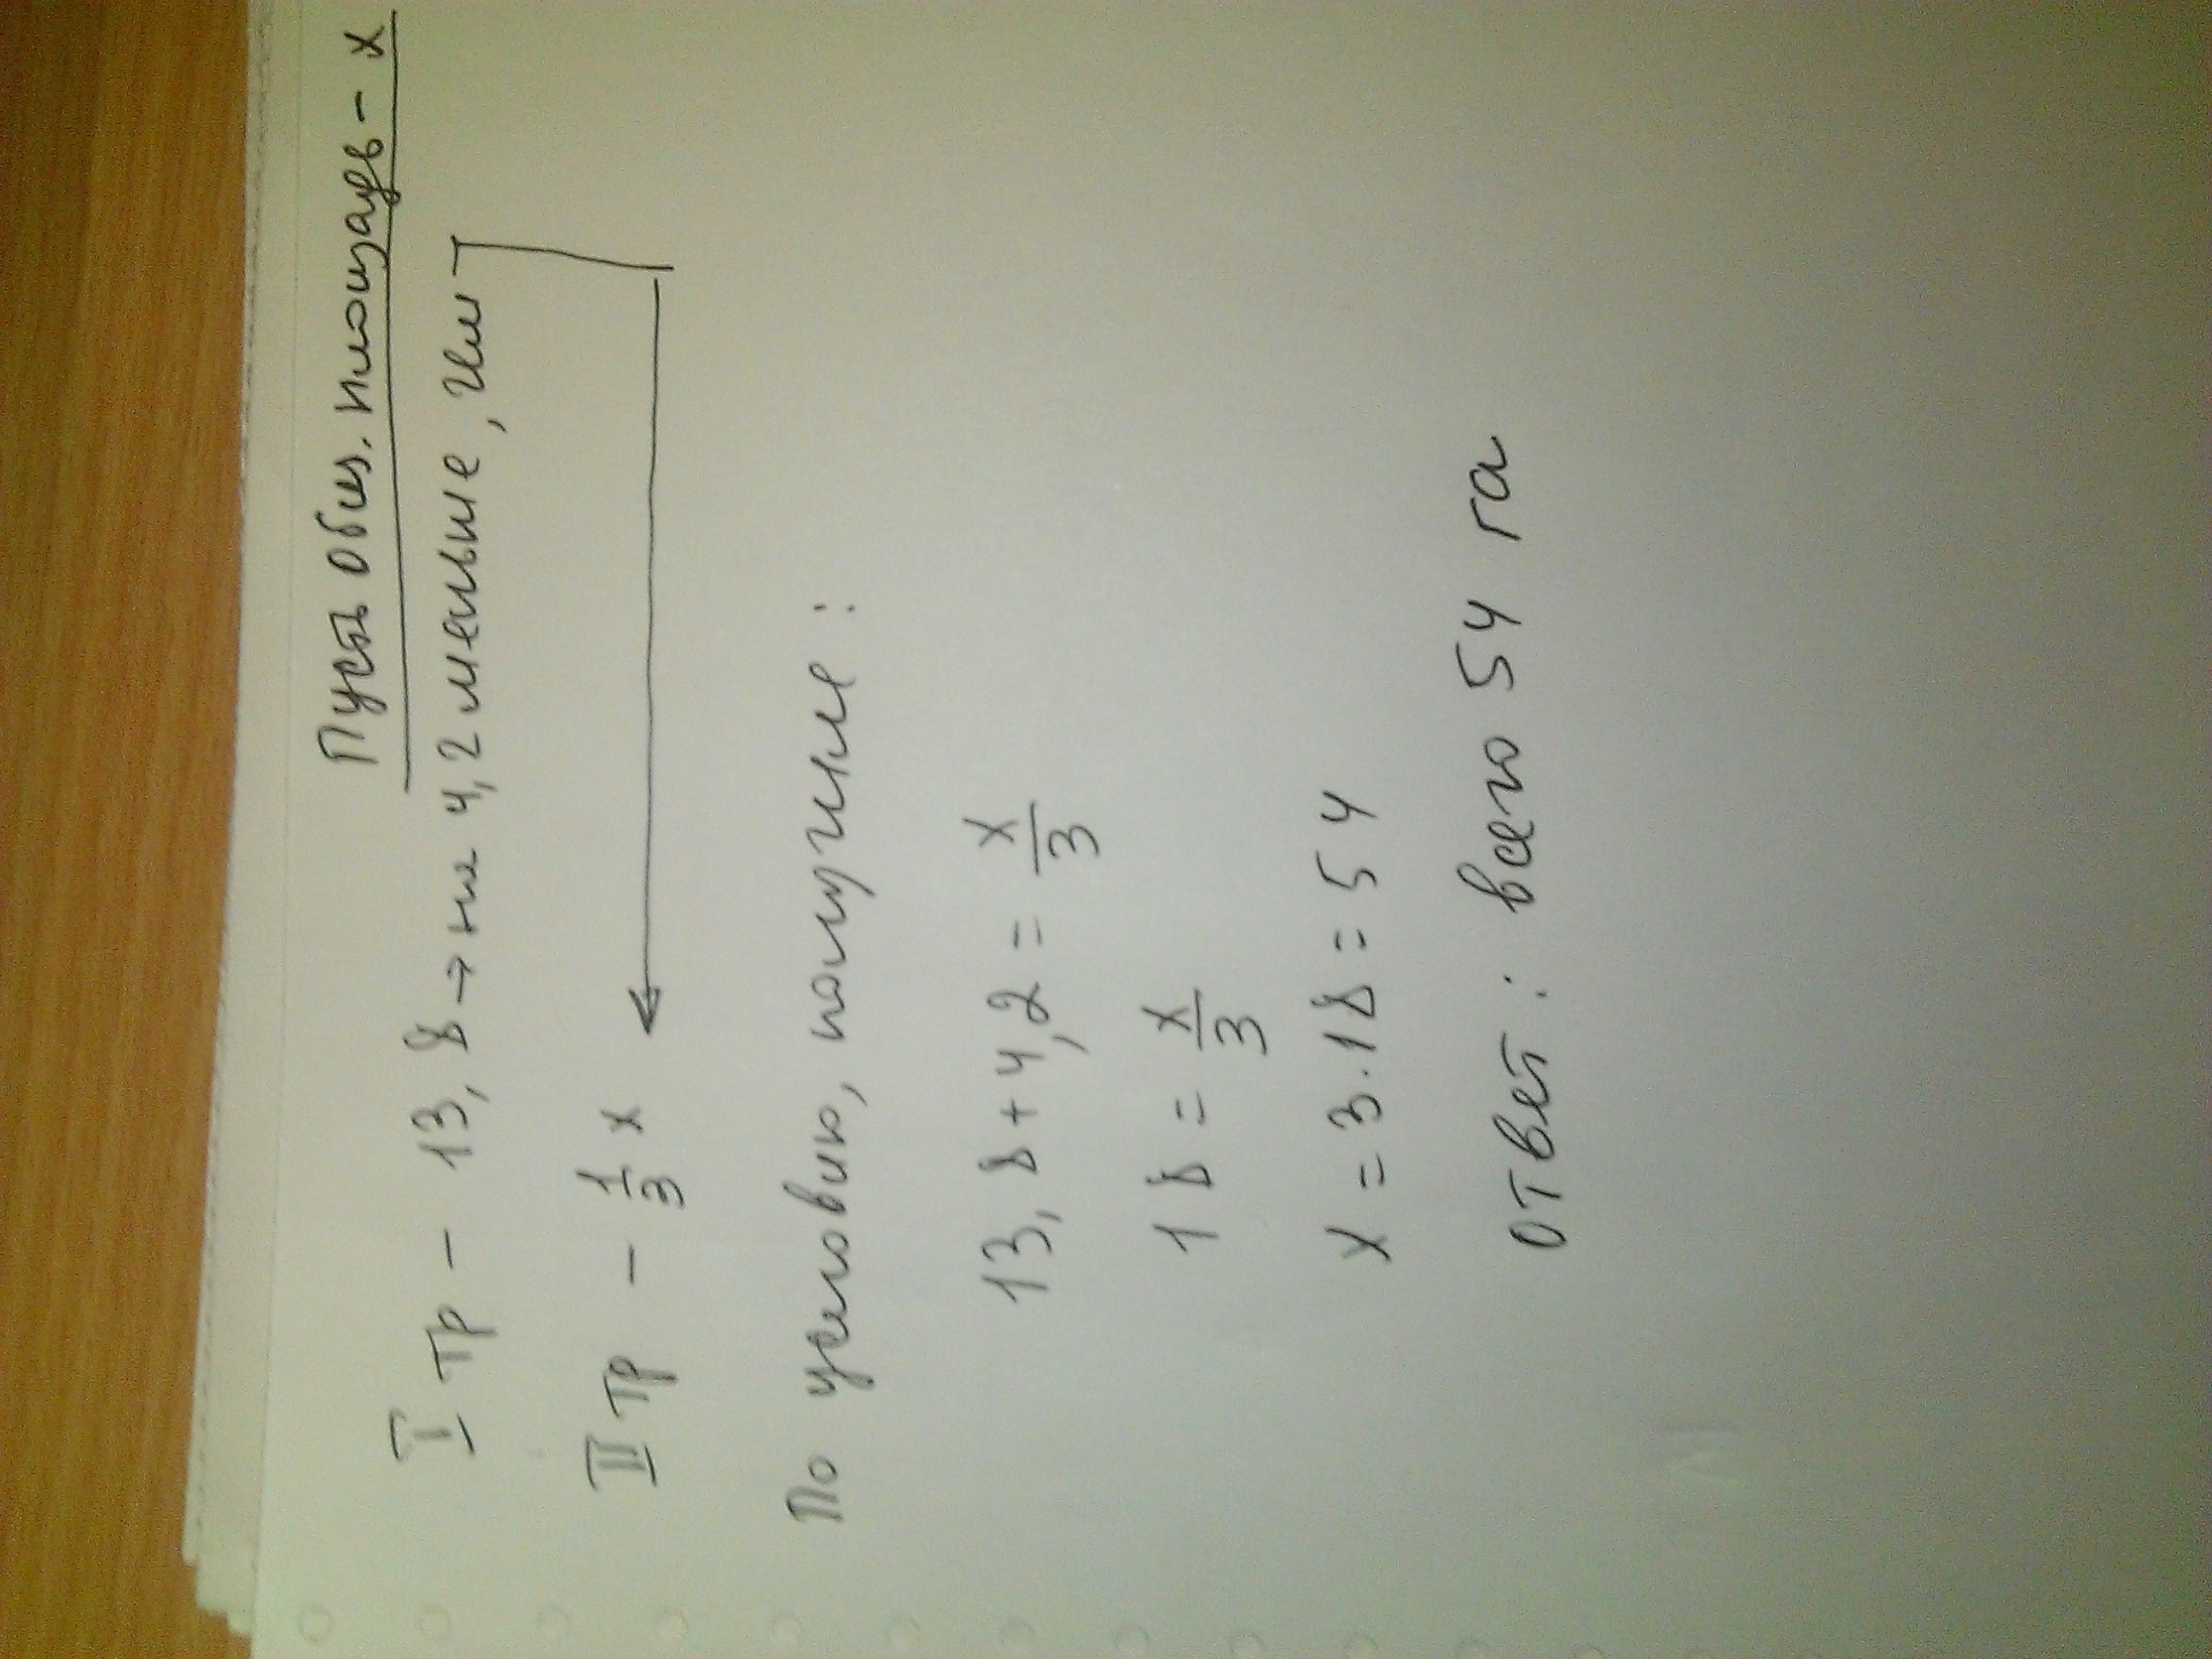 Пусть общ. площадь - x
I тр - 13,8 → на 4,2 меньше, чем
II тр - 1/3 x
По условию, получим :
13,8 + 4,2 = x/3
18 = x/3
x = 3 · 18 = 54
Ответ : всего 54 га